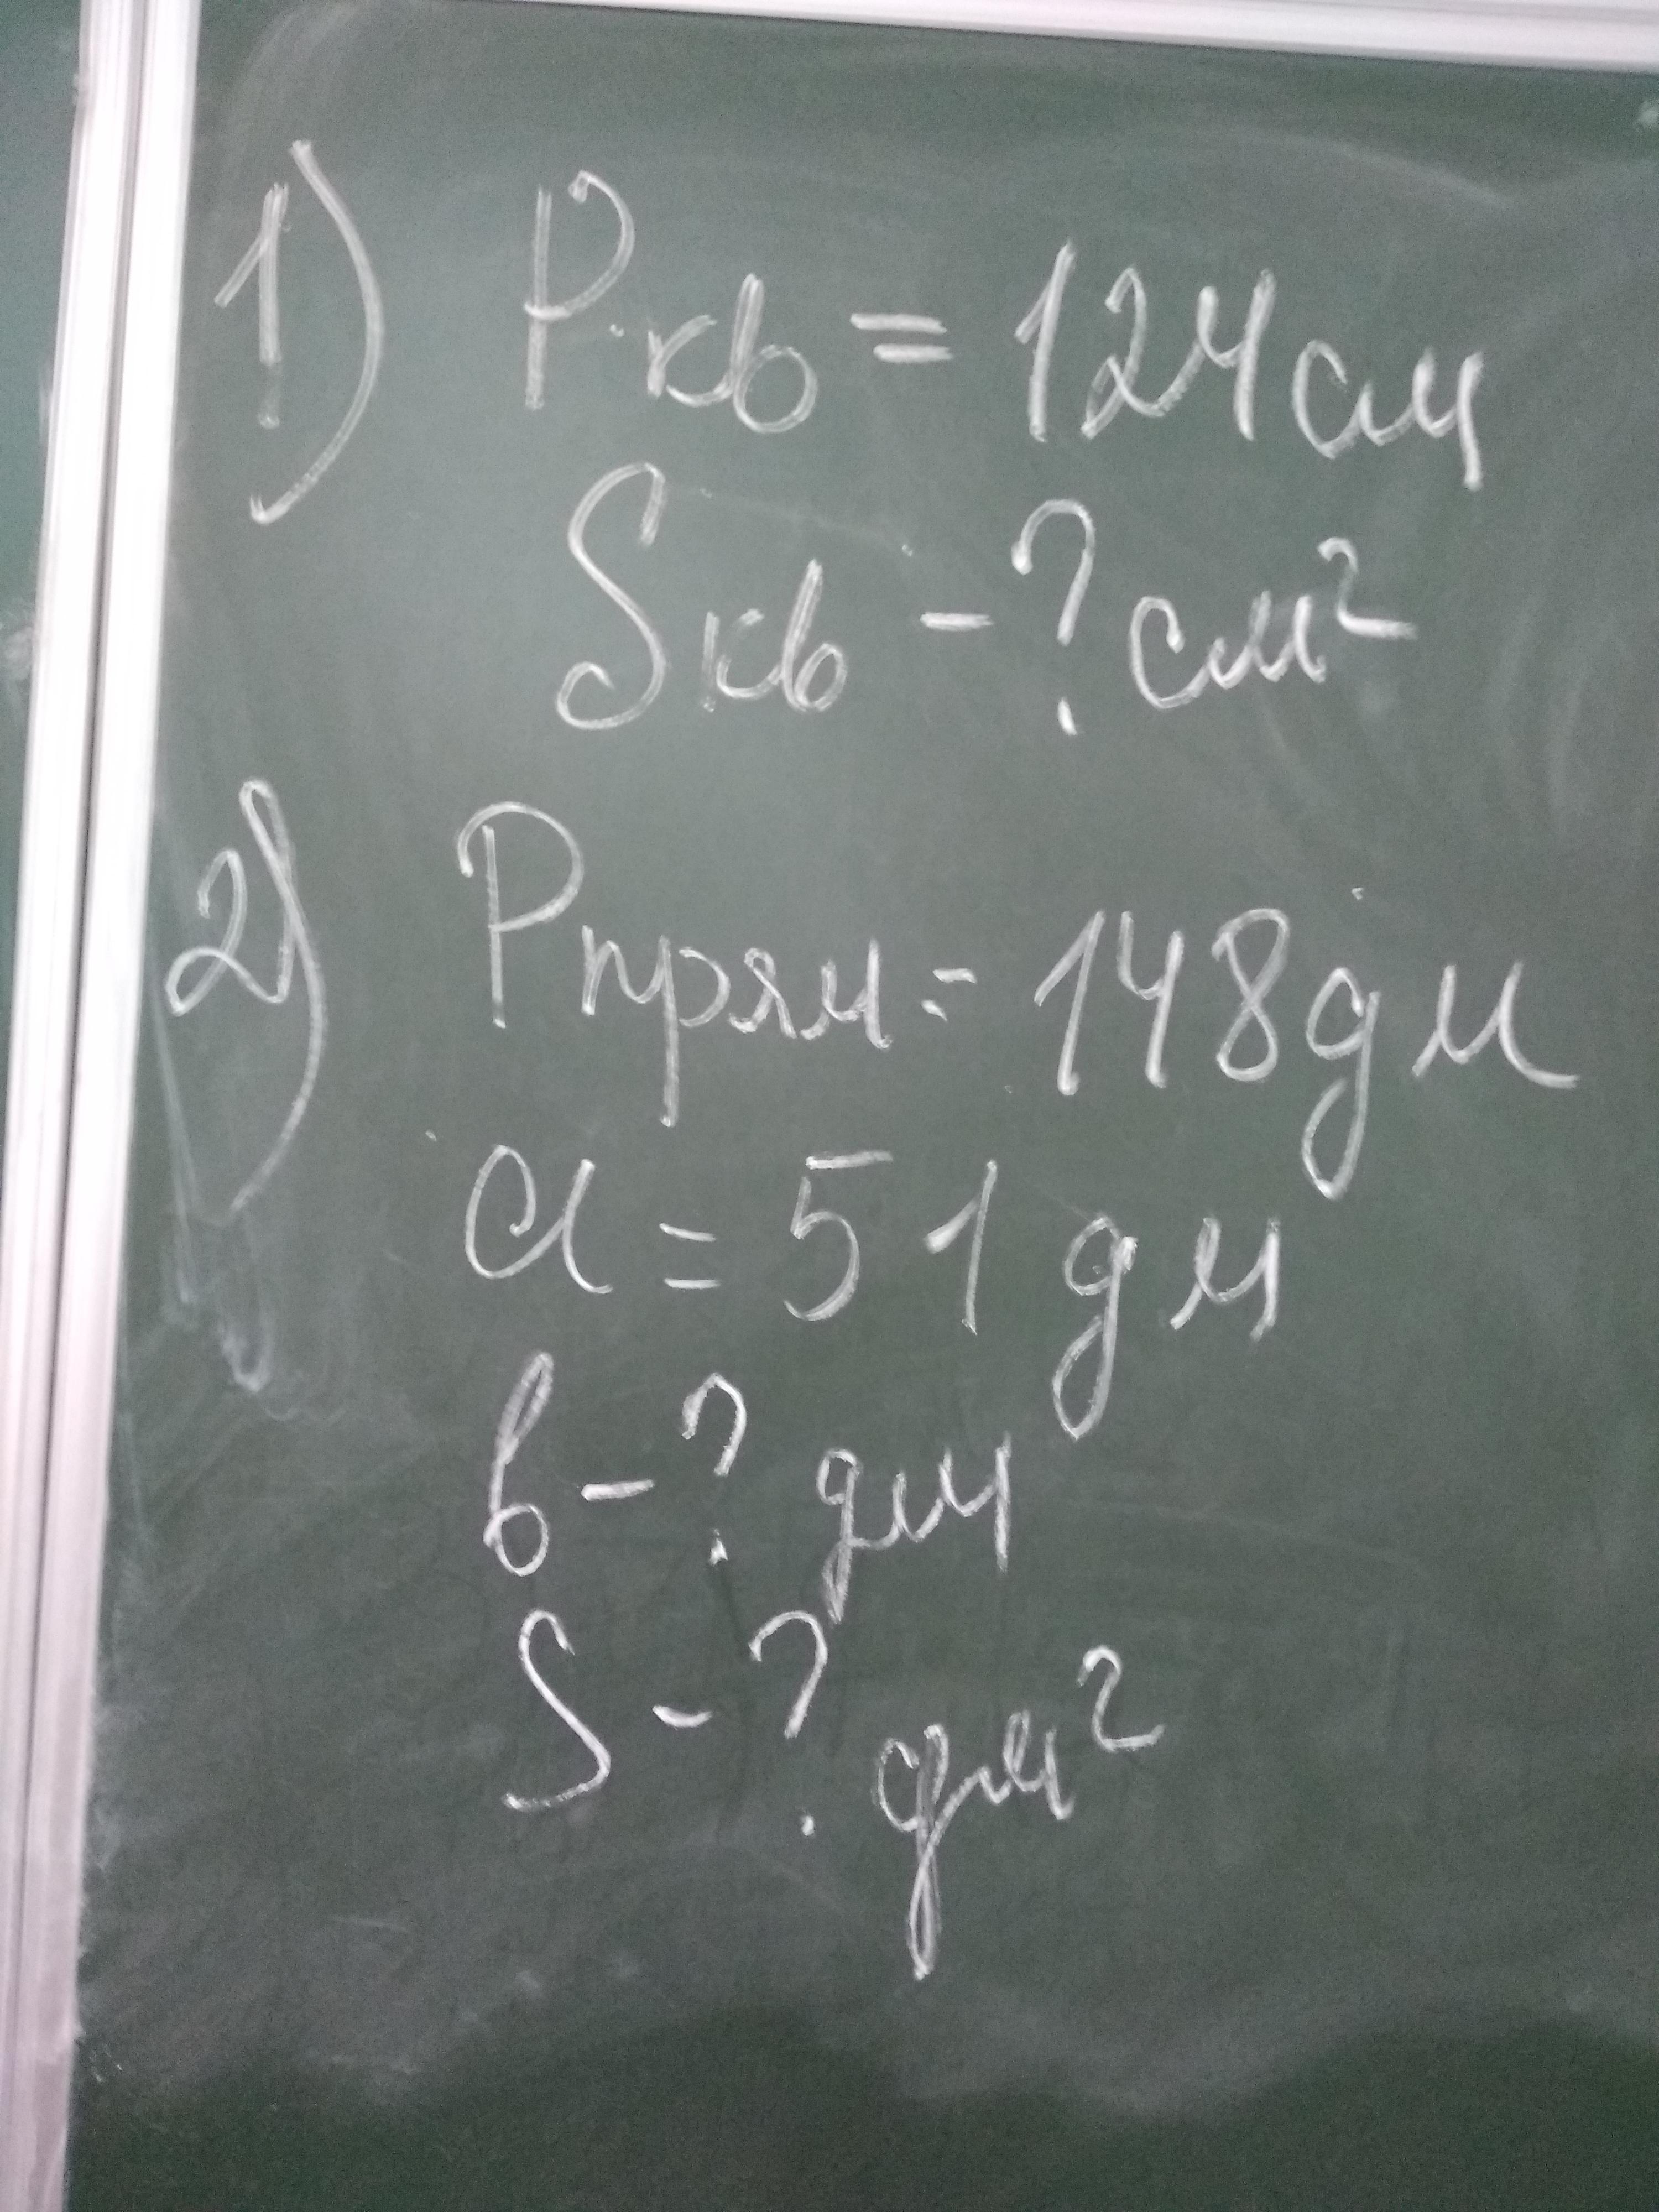 1) Pкв = 124 см
Sкв - ? см²
2) Pпрям = 148 дм
a = 51 дм
в - ? дм
S - ? дм²